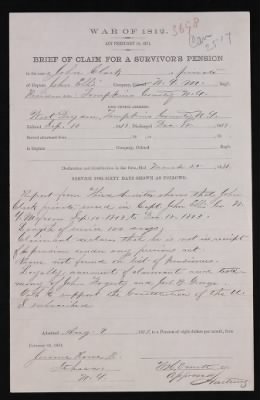 WAR OF 1812.
3698
ACT FEBRUARY 14, 1871.
Can
25-17
BRIEF OF CLAIM FOR A SURVIVOR'S PENSION
In the case John Clark, a private
of Captain John Ellis, N.Y.M., Regt.
Residence: Tompkins County N.Y.
POST OFFICE ADDRESS:
West Dryden, Tompkins County N.Y.
Enlisted Sep. 10 1812. Discharged Dec 18, 1812
of Captain Company, Colonel Regt.
Declaration and identification in due form, filed March 1871.
SERVICE FOR SIXTY DAYS SHOWN AS FOLLOWS.
Report from Third Auditor shows that John
Clark private served in Capt John Ellis Co. N.
Y.M. from Sep. 10-1812 to Dec. 18-1812.
Length of service 100 days;
Claimant declares that he is not in receipt
of a pension under any previous act.
Name not found on list of pensioners.
Loyalty, averment of claimant and testi-
mony of John and
Oath to support the Constitution of the U.
S subscribed
Admitted Aug. 9 187, to a Pension of eight dollars per month, from
February 14, 1871.
N.Y.
Approved